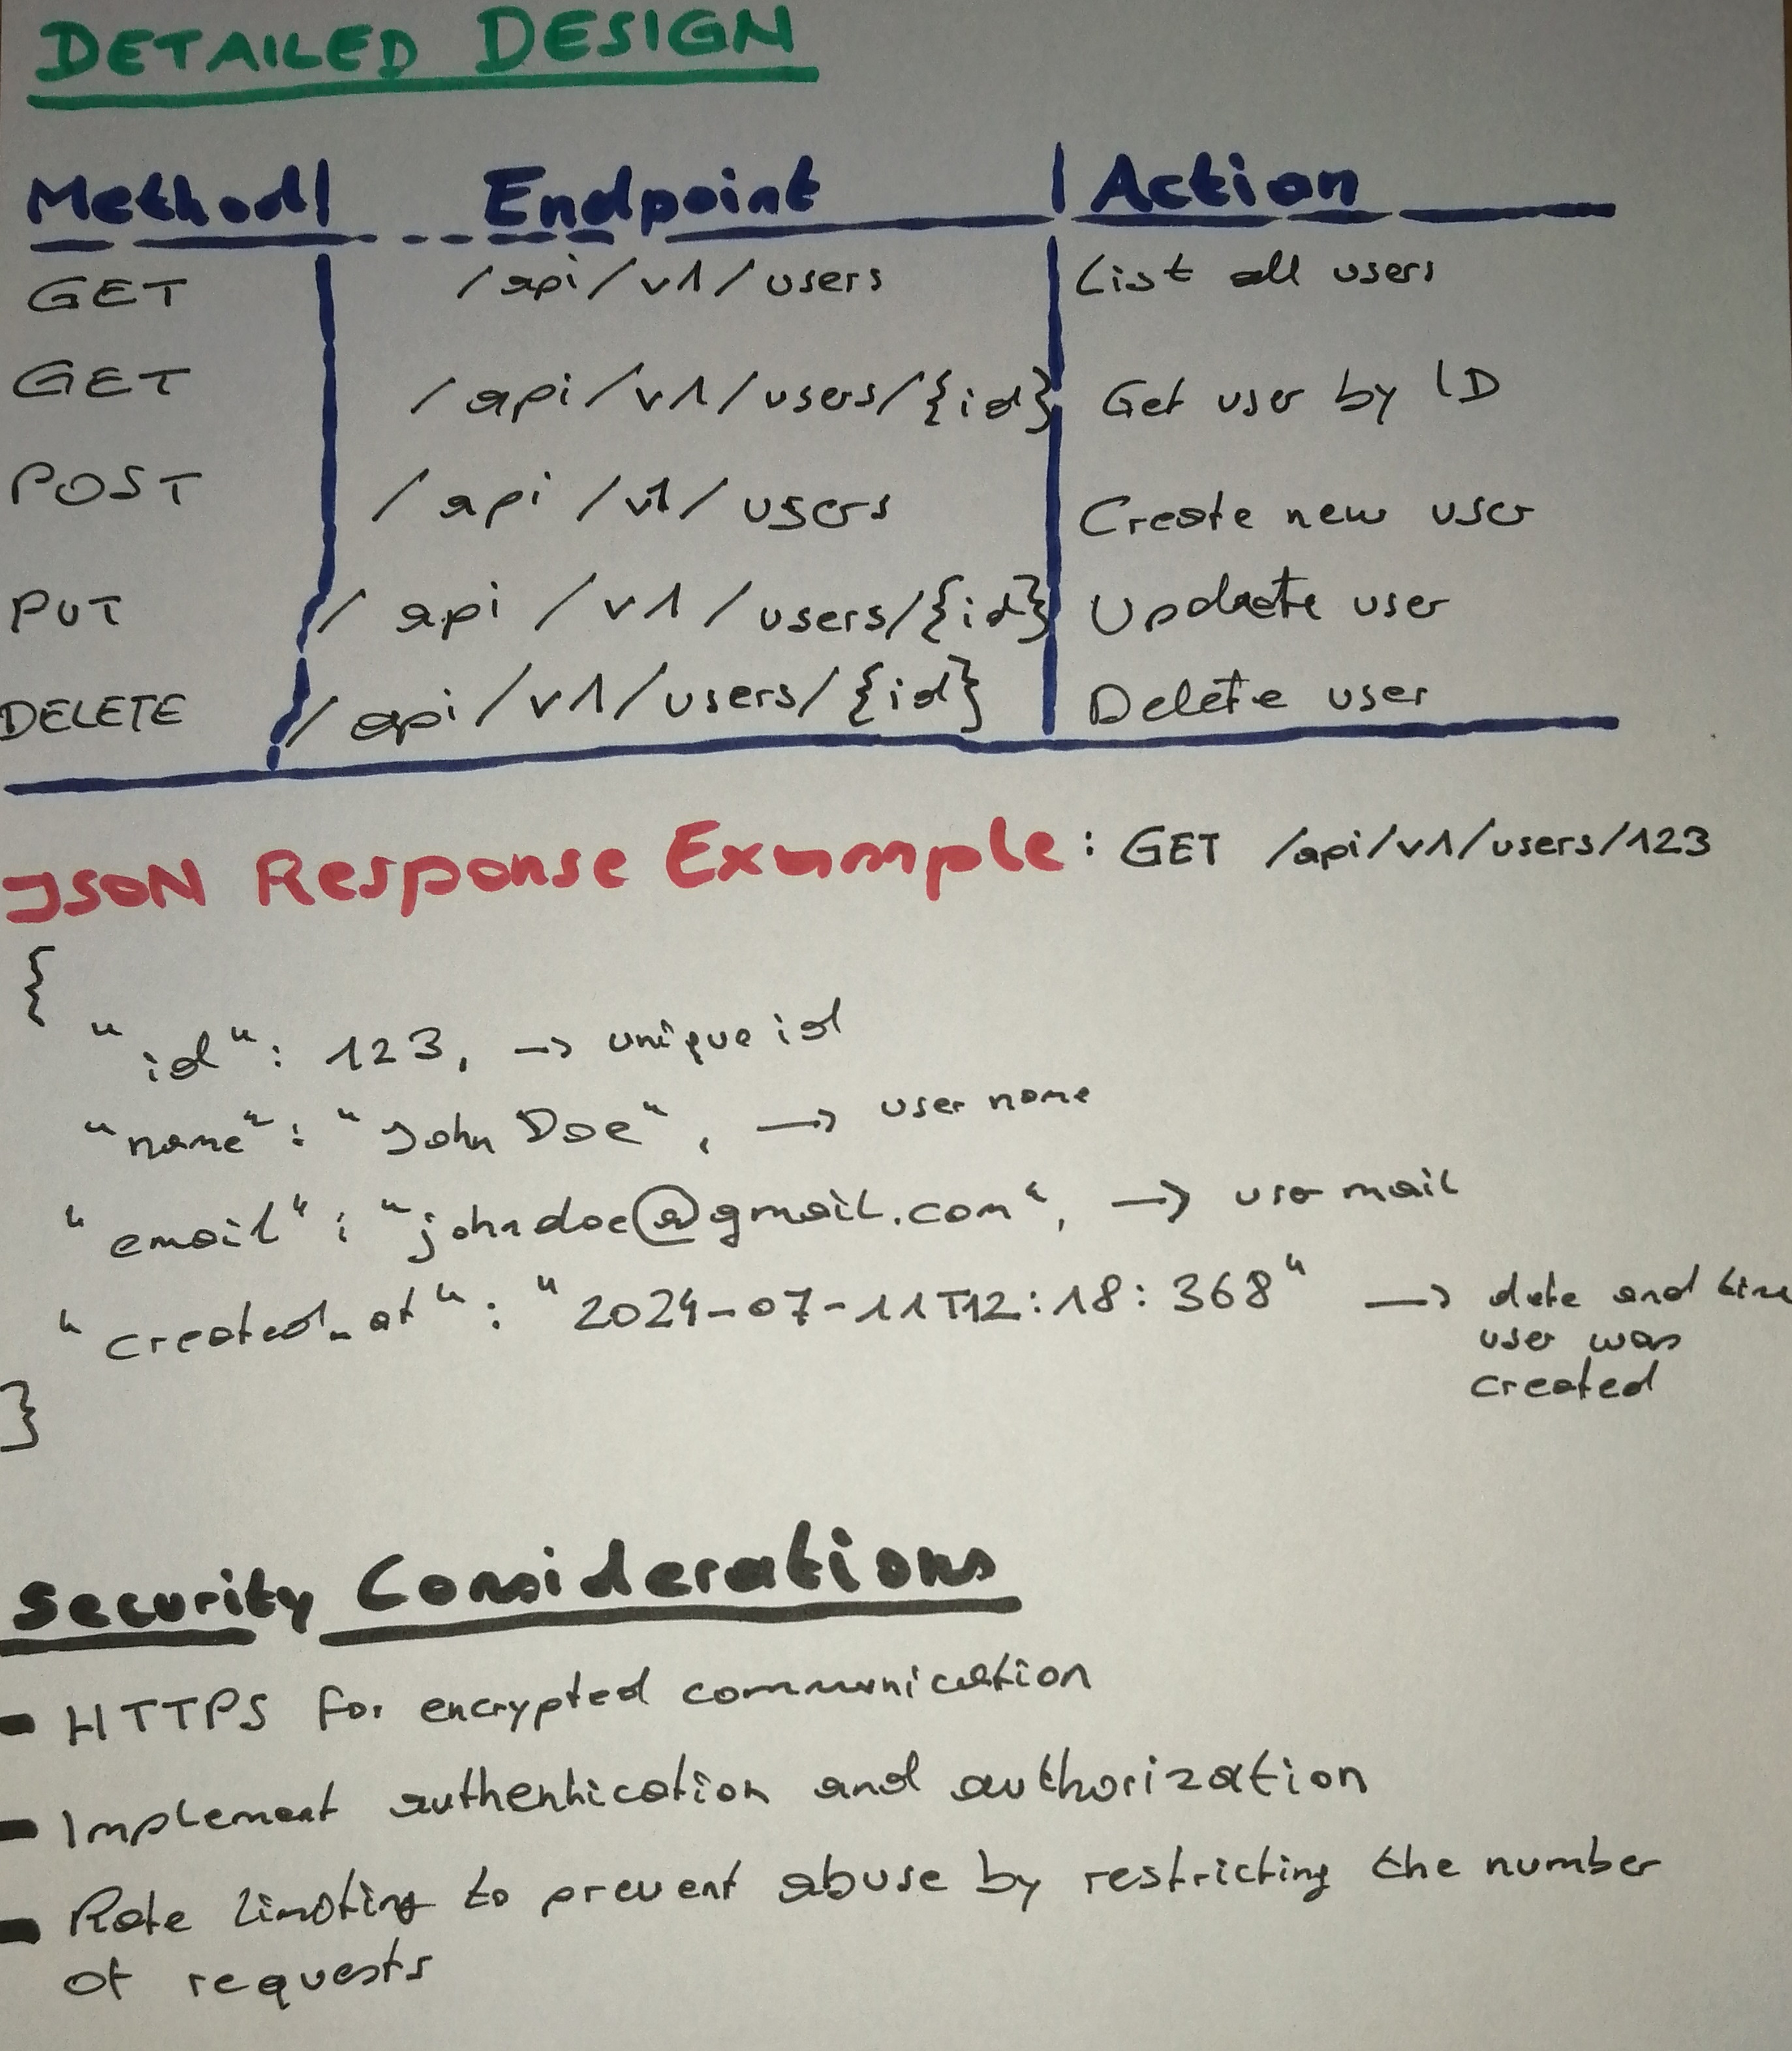 DETAILED DESIGN
Method | Endpoint | Action
GET /api/v1/users List all users
GET /api/v1/users/{id} Get user by ID
POST /api/v1/users Create new user
PUT /api/v1/users/{id} Update user
DELETE /api/v1/users/{id} Delete user
JSON Response Example: GET /api/v1/users/123
{
"id": 123, -> unique id
"name": "John Doe", -> user name
"email": "johndoe@gmail.com", -> user mail
"created_at": "2024-07-11T12:18:368" -> date and time
user was
created
}
Security Considerations
- HTTPS for encrypted communication
- Implement authentication and authorization
- Rate limiting to prevent abuse by restricting the number
of requests